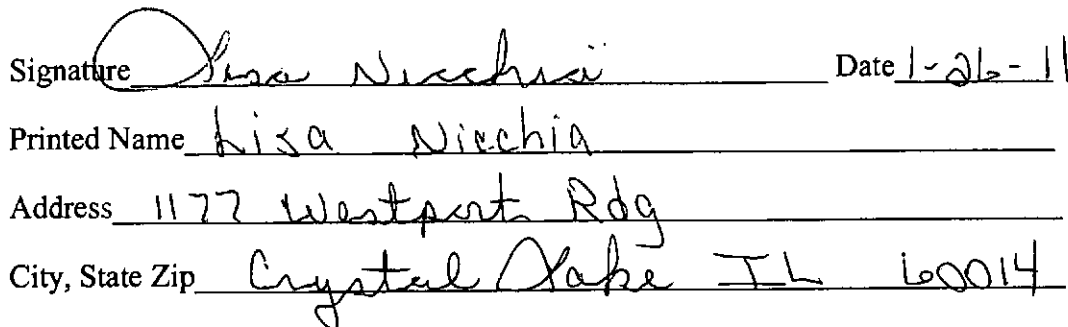 Signature Lisa Nicchia Date 1-26-11
Printed Name Lisa Nicchia
Address 1177 Westport Rdg
City, State Zip Crystal Lake IL 60014